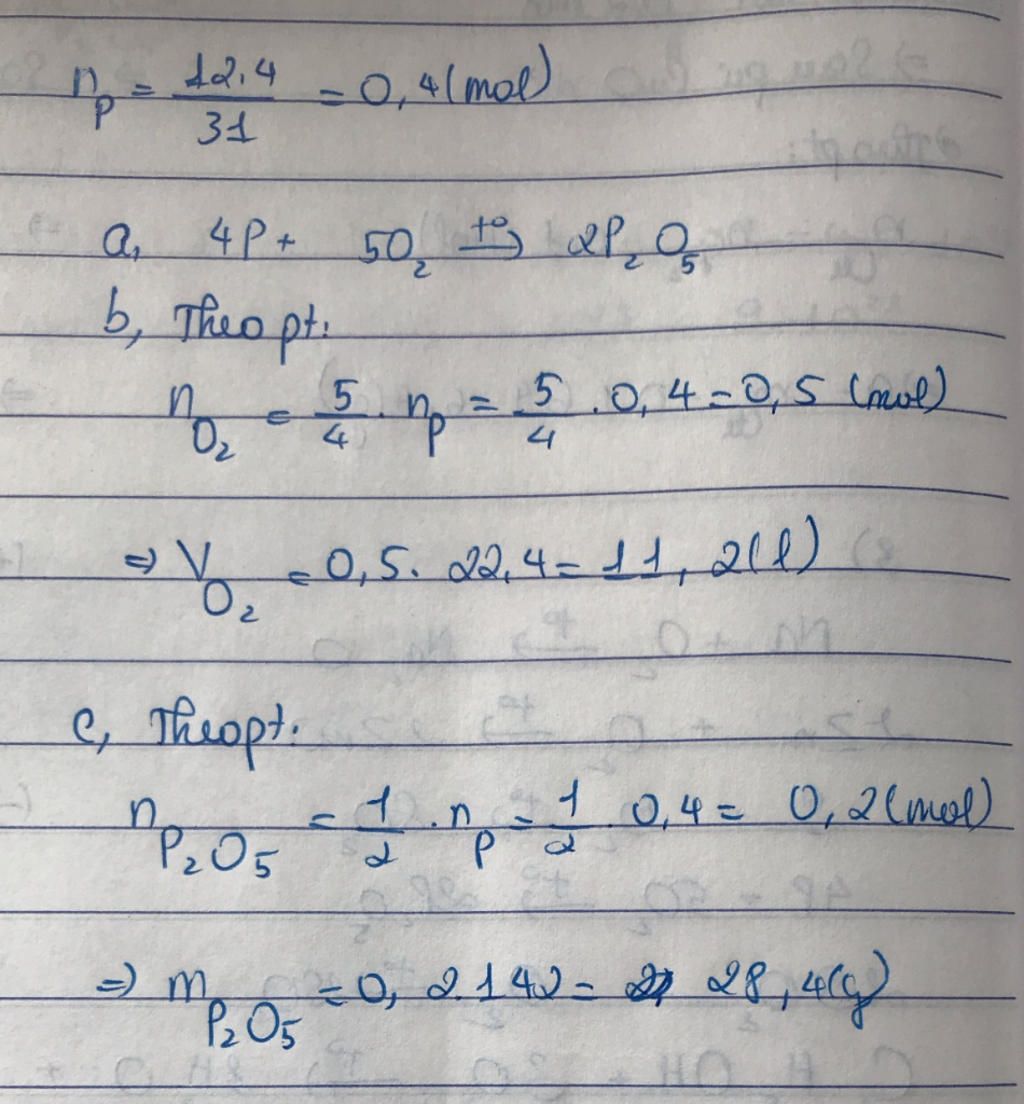 n_P = 12.4/31 = 0,4 (mol)
a, 4P + 5O₂ →(t°) 2P₂O₅
b, Theo pt:
n_O₂ = 5/4 . n_P = 5/4 . 0,4 = 0,5 (mol)
⇒ V_O₂ = 0,5. 22,4 = 11,2 (l)
c, Theo pt:
n_P₂O₅ = 1/2 . n_P = 1/2 . 0,4 = 0,2 (mol)
⇒ m_P₂O₅ = 0,2.142 = 28,4 (g)